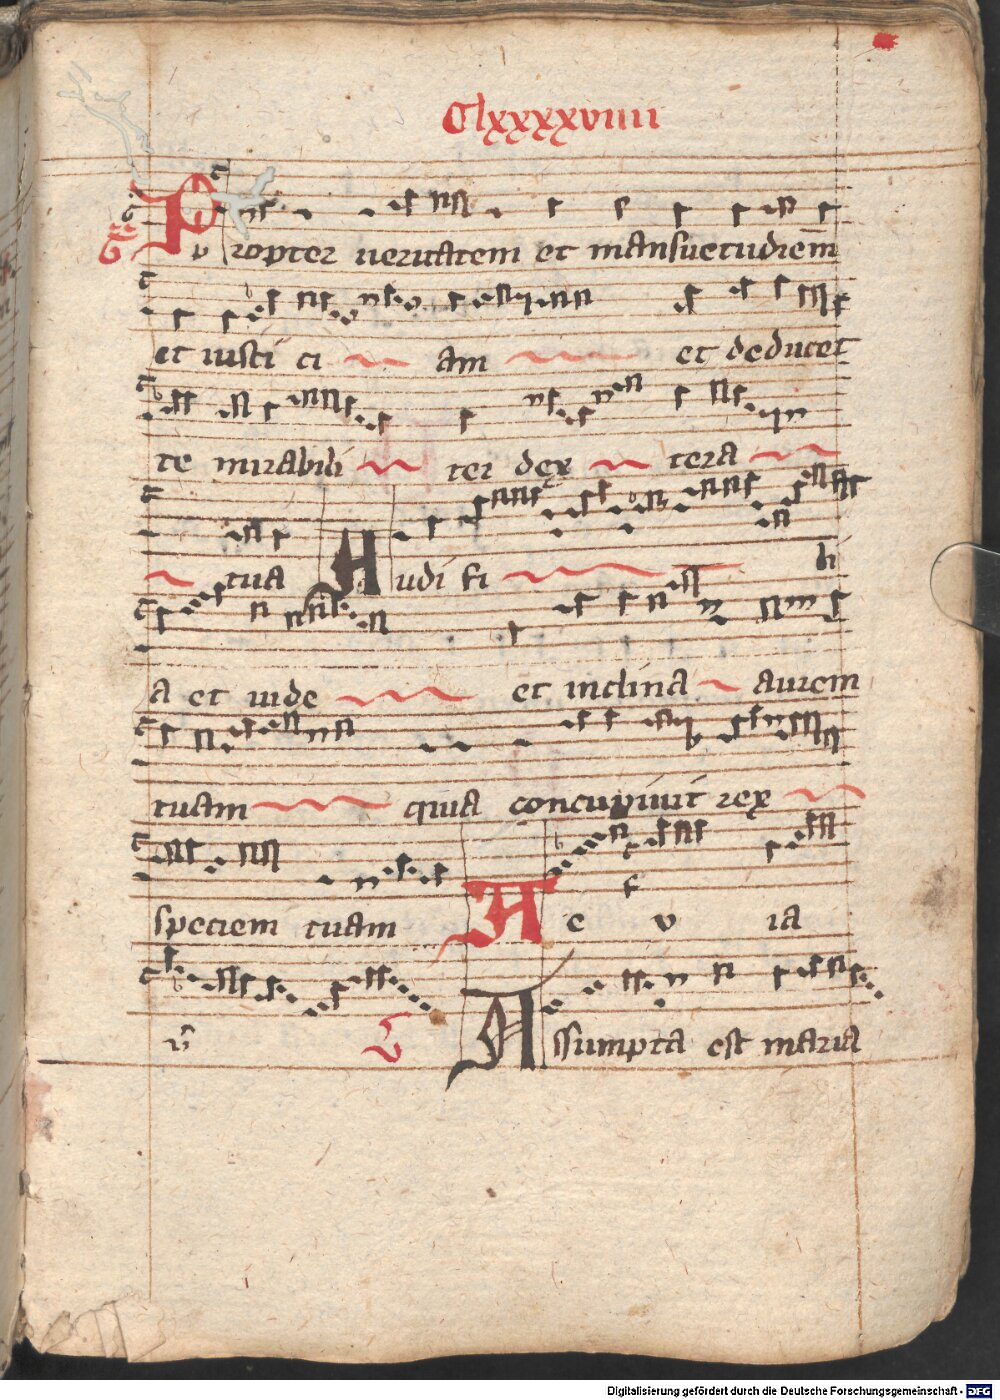 Clxxxxviiii
Propter ueritatem et mansuetudiem̄
et iusti ci am et deducet
te mirabili ter dex tera
tua Audi fi li
a et uide et inclina aurem
tuam quia concupiuit rex
speciem tuam A e v ia
v̄ Assumpta est maria
Digitalisierung gefördert durch die Deutsche Forschungsgemeinschaft - DFG